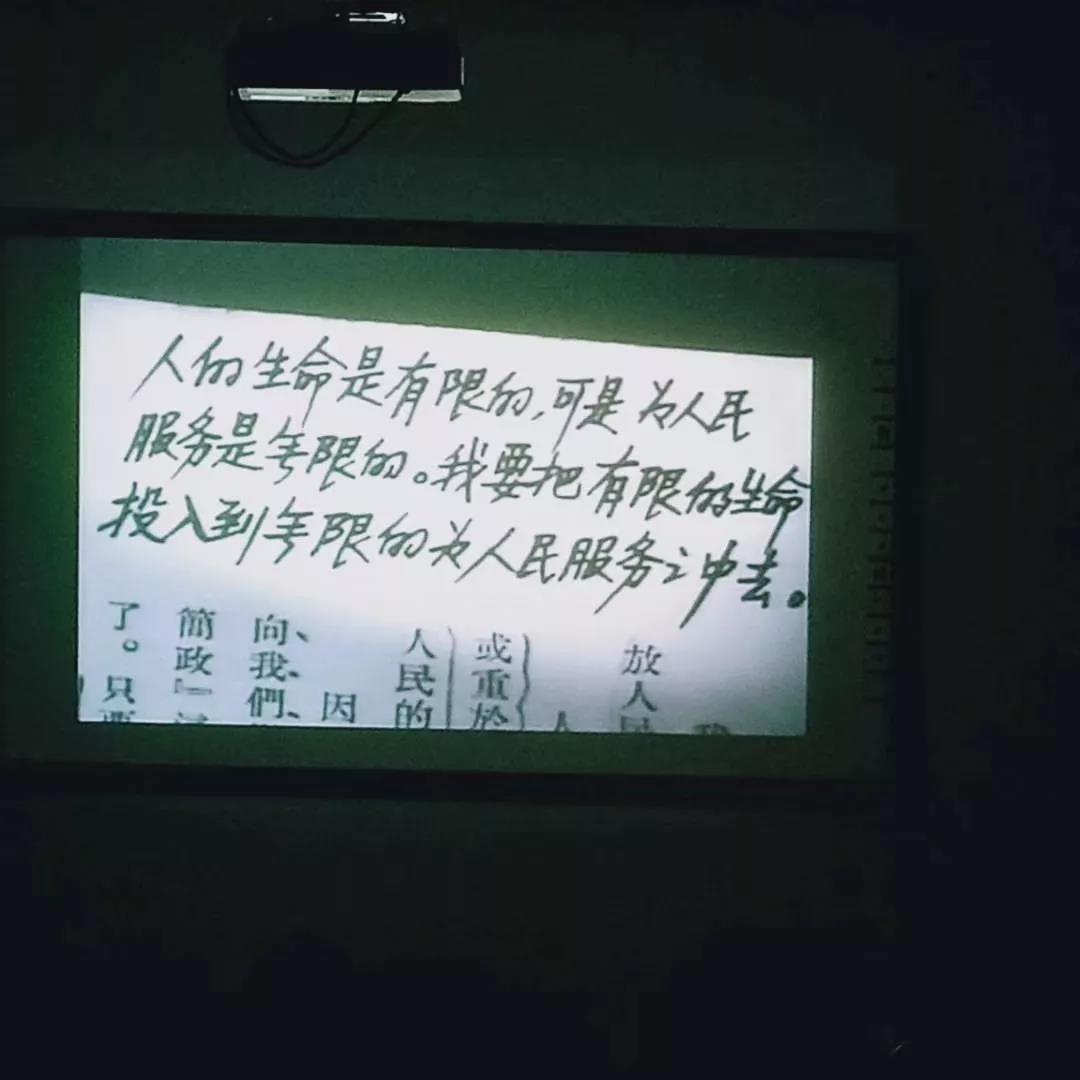 人的生命是有限的,可是为人民
服务是无限的。我要把有限的生命
投入到无限的为人民服务之中去。
放人民
或重於
人民的
因
向、我、們、
簡政』
了。只要